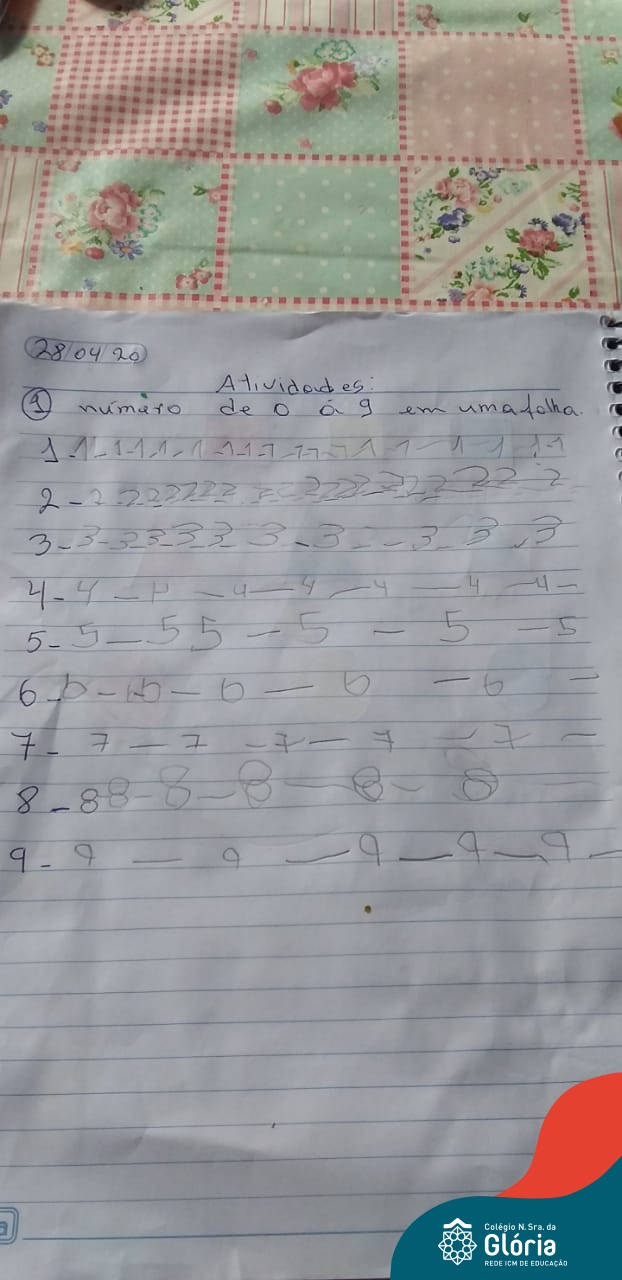 28/04/20
Atividades:
1 número de 0 á 9 em uma folha.
1 1-1-1-1-1-1-1-1-1-1-1 1-1 1 1-1
2-2 2 2 2 2 2 2 2 2 2 2 2 2 2 2 2 2 2
3-3-3 3-3 3 3-3--3-3-3
4-4-4-4-4-4-4-4-
5-5-5 5-5-5-5
6-6-6-6-6-6-
7-7-7-7-7-7-
8-8 8-8-8-8-8-
9-9-9-9-9-9-
Colégio N. Sra. da
Glória
REDE ICM DE EDUCAÇÃO